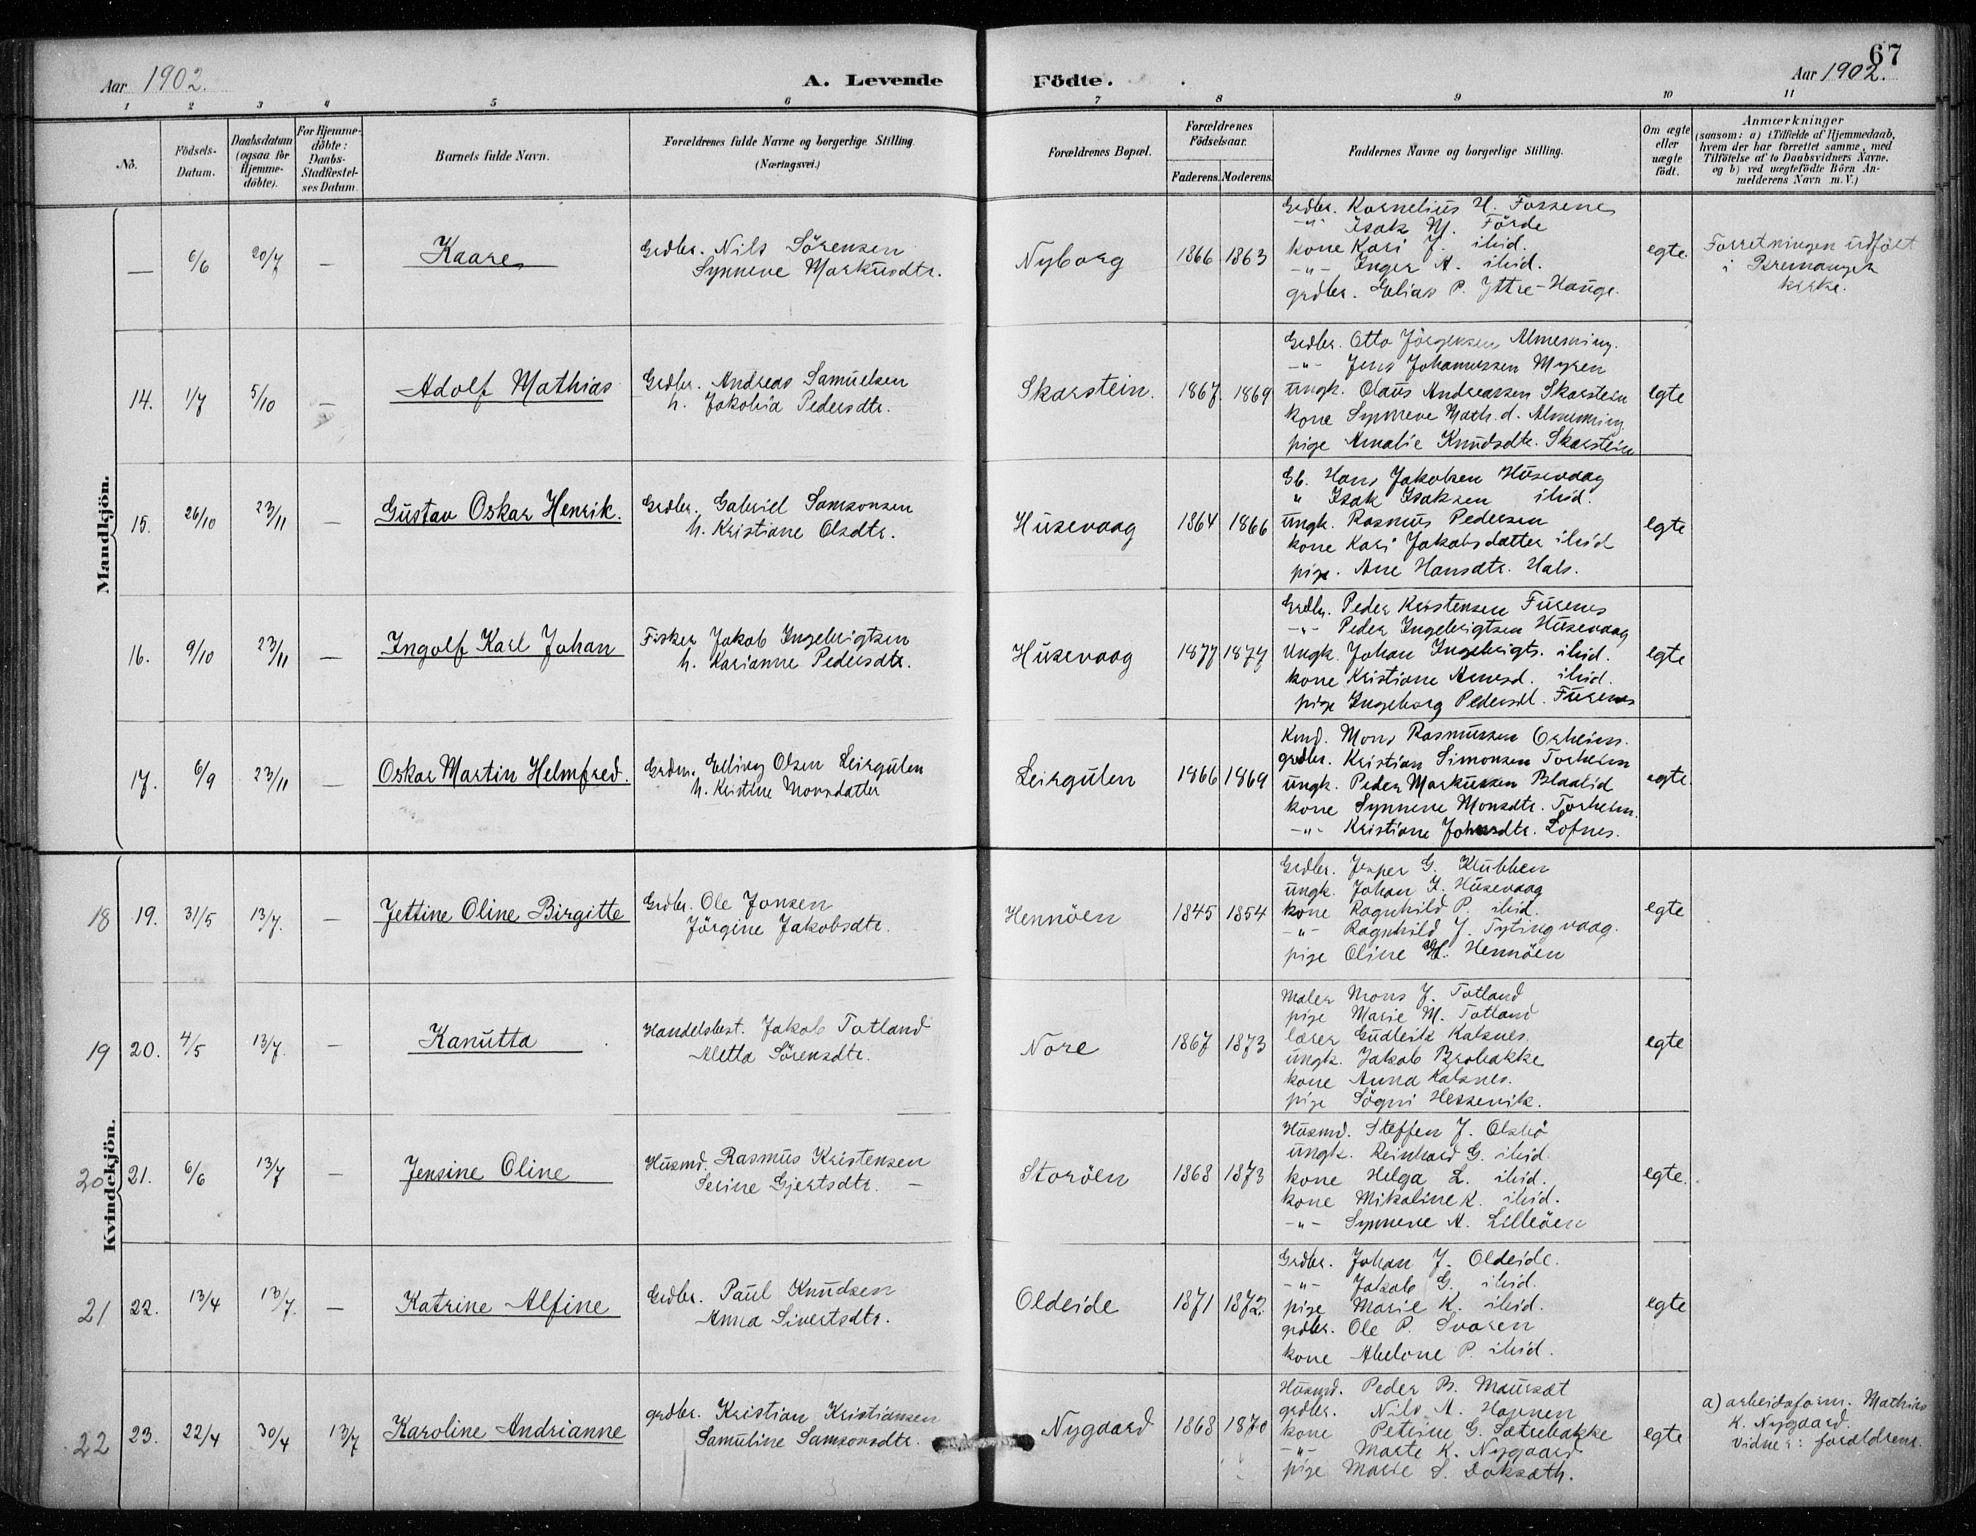 67
Aar 1902. A. Levende Födte. Aar 1902.
1 2 3 4 5 6 7 8 9 10 11
Nö.
Födsels-
Datum.
Daabsdatum
(ogsaa for
Hjemme-
döbte).
For Hjemme-
döbte:
Daabs-
Stadfæstel-
ses Datum.
Barnets fulde Navn.
Forældrenes fulde Navne og borgerlige Stilling.
(Næringsvei.)
Forældrenes Bopæl.
Forældrenes
Födselsaar.
Faderens. Moderens.
Faddernes Navne og borgerlige Stilling.
Om ægte
eller
uægte
födt.
Anmærkninger
(saasom: a) i Tilfælde af Hjemmedaab,
hvem der har forrettet samme, med
Tilföielse af to Daabsvidners Navne.
og b) ved uægtefödte Börn An-
melderens Navn m.V.)
Mandkjön.
— 6/6 20/7 — Kaare
Grdbr. Nils Sörensen
Synneve Markusdtr.
Nyborg 1866 1863
Grdbr. Kornelius H. Förde
-"- Isak M. Förde
kone Kari J. ibid.
-"- Inger A. ibid.
grdbr. Elias P. Yttre-Hauge.
egte
Forretningen udfört
i Bremanger
kirke.
14. 1/7 5/10 — Adolf Mathias
Grdbr. Andreas Samuelsen
h. Jakobia Pedersdtr.
Skarstein. 1867 1869
Grdbr. Otto Jörgensen Almenning.
-"- Jens Johannessen Myren
ungk. Olaus Andreassen Skarstein
kone Synneve Math.d. Almenning
pige Amalie Knudsdtr. Skarstein
egte
15. 26/10 23/11 — Gustav Oskar Henrik.
Grdbr. Gabriel Samsonsen
h. Kristiane Olsdtr.
Husevaag 1864 1866
Gb. Hans Jakobsen Husevaag
" Isak Isaksen ibid.
ungk. Rasmus Pedersen
kone Kari Jakobsdatter ibid
pige. Ane Hansdtr. Hals.
egte
16. 9/10 23/11 — Ingolf Karl Johan
Fisker Jakob Ingebrigtsen
h. Karianne Pedersdtr.
Husevaag 1877 1874
Grdbr. Peder Kristensen Furenes
-"- Peder Ingebrigtsen Husevaag
Ungk. Johan Ingebrigts. ibid.
kone Kristiane Arnesd. ibid.
pige Ingeborg Pedersdt. Furenes
egte
17. 6/9 23/11 — Oskar Martin Helmfred.
Grdm. Elling Olsen Leirgulen
h. Kristine Monsdatter
Leirgulen 1866 1869
Kmd. Mons Rasmussen Orheim.
grdbr. Kristian Simonsen Torheim
ungk. Peder Markussen Blaalid
kone Synneve Monsdtr. Torheim.
-"- Kristiane Johansdtr. Löfnes.
egte
Kvindekjön.
18 19. 31/5 13/7. — Jettine Oline Birgitte
Grdbr. Ole Jonsen
Jörgine Jakobsdtr.
Hennöen 1845 1854
Grdbr. Jesper G. Klubben
ungk. Johan I. Husevaag
kone Ragnhild P. ibid.
-"- Ragnhild J. Tytingvaag.
pige Oline H. Hennöen
egte
19 20. 4/5 13/7. — Kanutta
Handelsbest. Jakob Totland
Aletta Sörensdtr.
Nore 1867 1873
Maler Mons J. Totland
pige Marie M. Totland
lærer Gudleik Kalsnes.
ungk. Jakob Brobakke
kone Anna Kalsnes.
pige Sögni Hessevik.
egte
20 21. 6/6 13/7 — Jensine Oline
Husmd. Rasmus Kristensen
Serine Gjertsdtr. —
Storöen 1868 1873
Husmd. Steffen J. Olsbö
ungk. Reinhard G. ibid.
kone Helga L. ibid.
kone Mikaline K. ibid.
-"- Synneve A. Lilleöen
egte.
21 22. 13/4 13/7. — Katrine Alfine
Grdbr. Paul Knudsen
Anna Sivertsdtr.
Oldeide 1871 1872.
Grdbr. Johan J. Oldeide.
-"- Jakob G. ibid.
pige Marie K. ibid.
grdbr. Ole P. Svoren
kone Abelone P. ibid.
egte
22 23. 22/4 30/4 13/7 Karoline Andrianne
grdbr. Kristian Kristiansen
Samuline Samsonsdtr.
Nygaard 1868 1870
Husmd. Peder B. Maursæt
grdbr. Nils A. Hopnen
kone Petrine G. Sætrebakke
-"- Marte K. Nygaard
pige Marie S. Doksæth.
egte
a) arbeidsform. Mathias
K. Nygaard.
Vidner: forældrene.